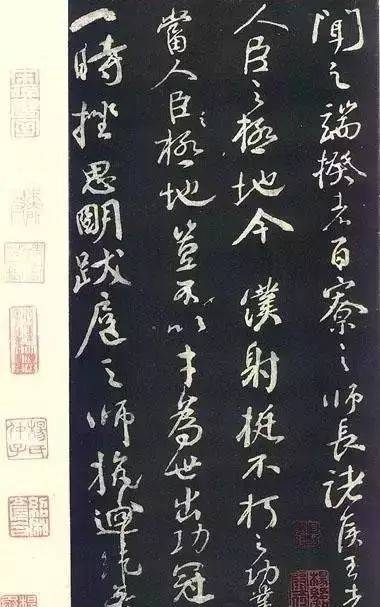 聞之端揆者百寮之師長諸侯王者
人臣之極地今僕射挺不朽之功業
當人臣極地豈不以才為世出功冠
一時挫思明跋扈之師抗迴紇無
楊氏
仲子